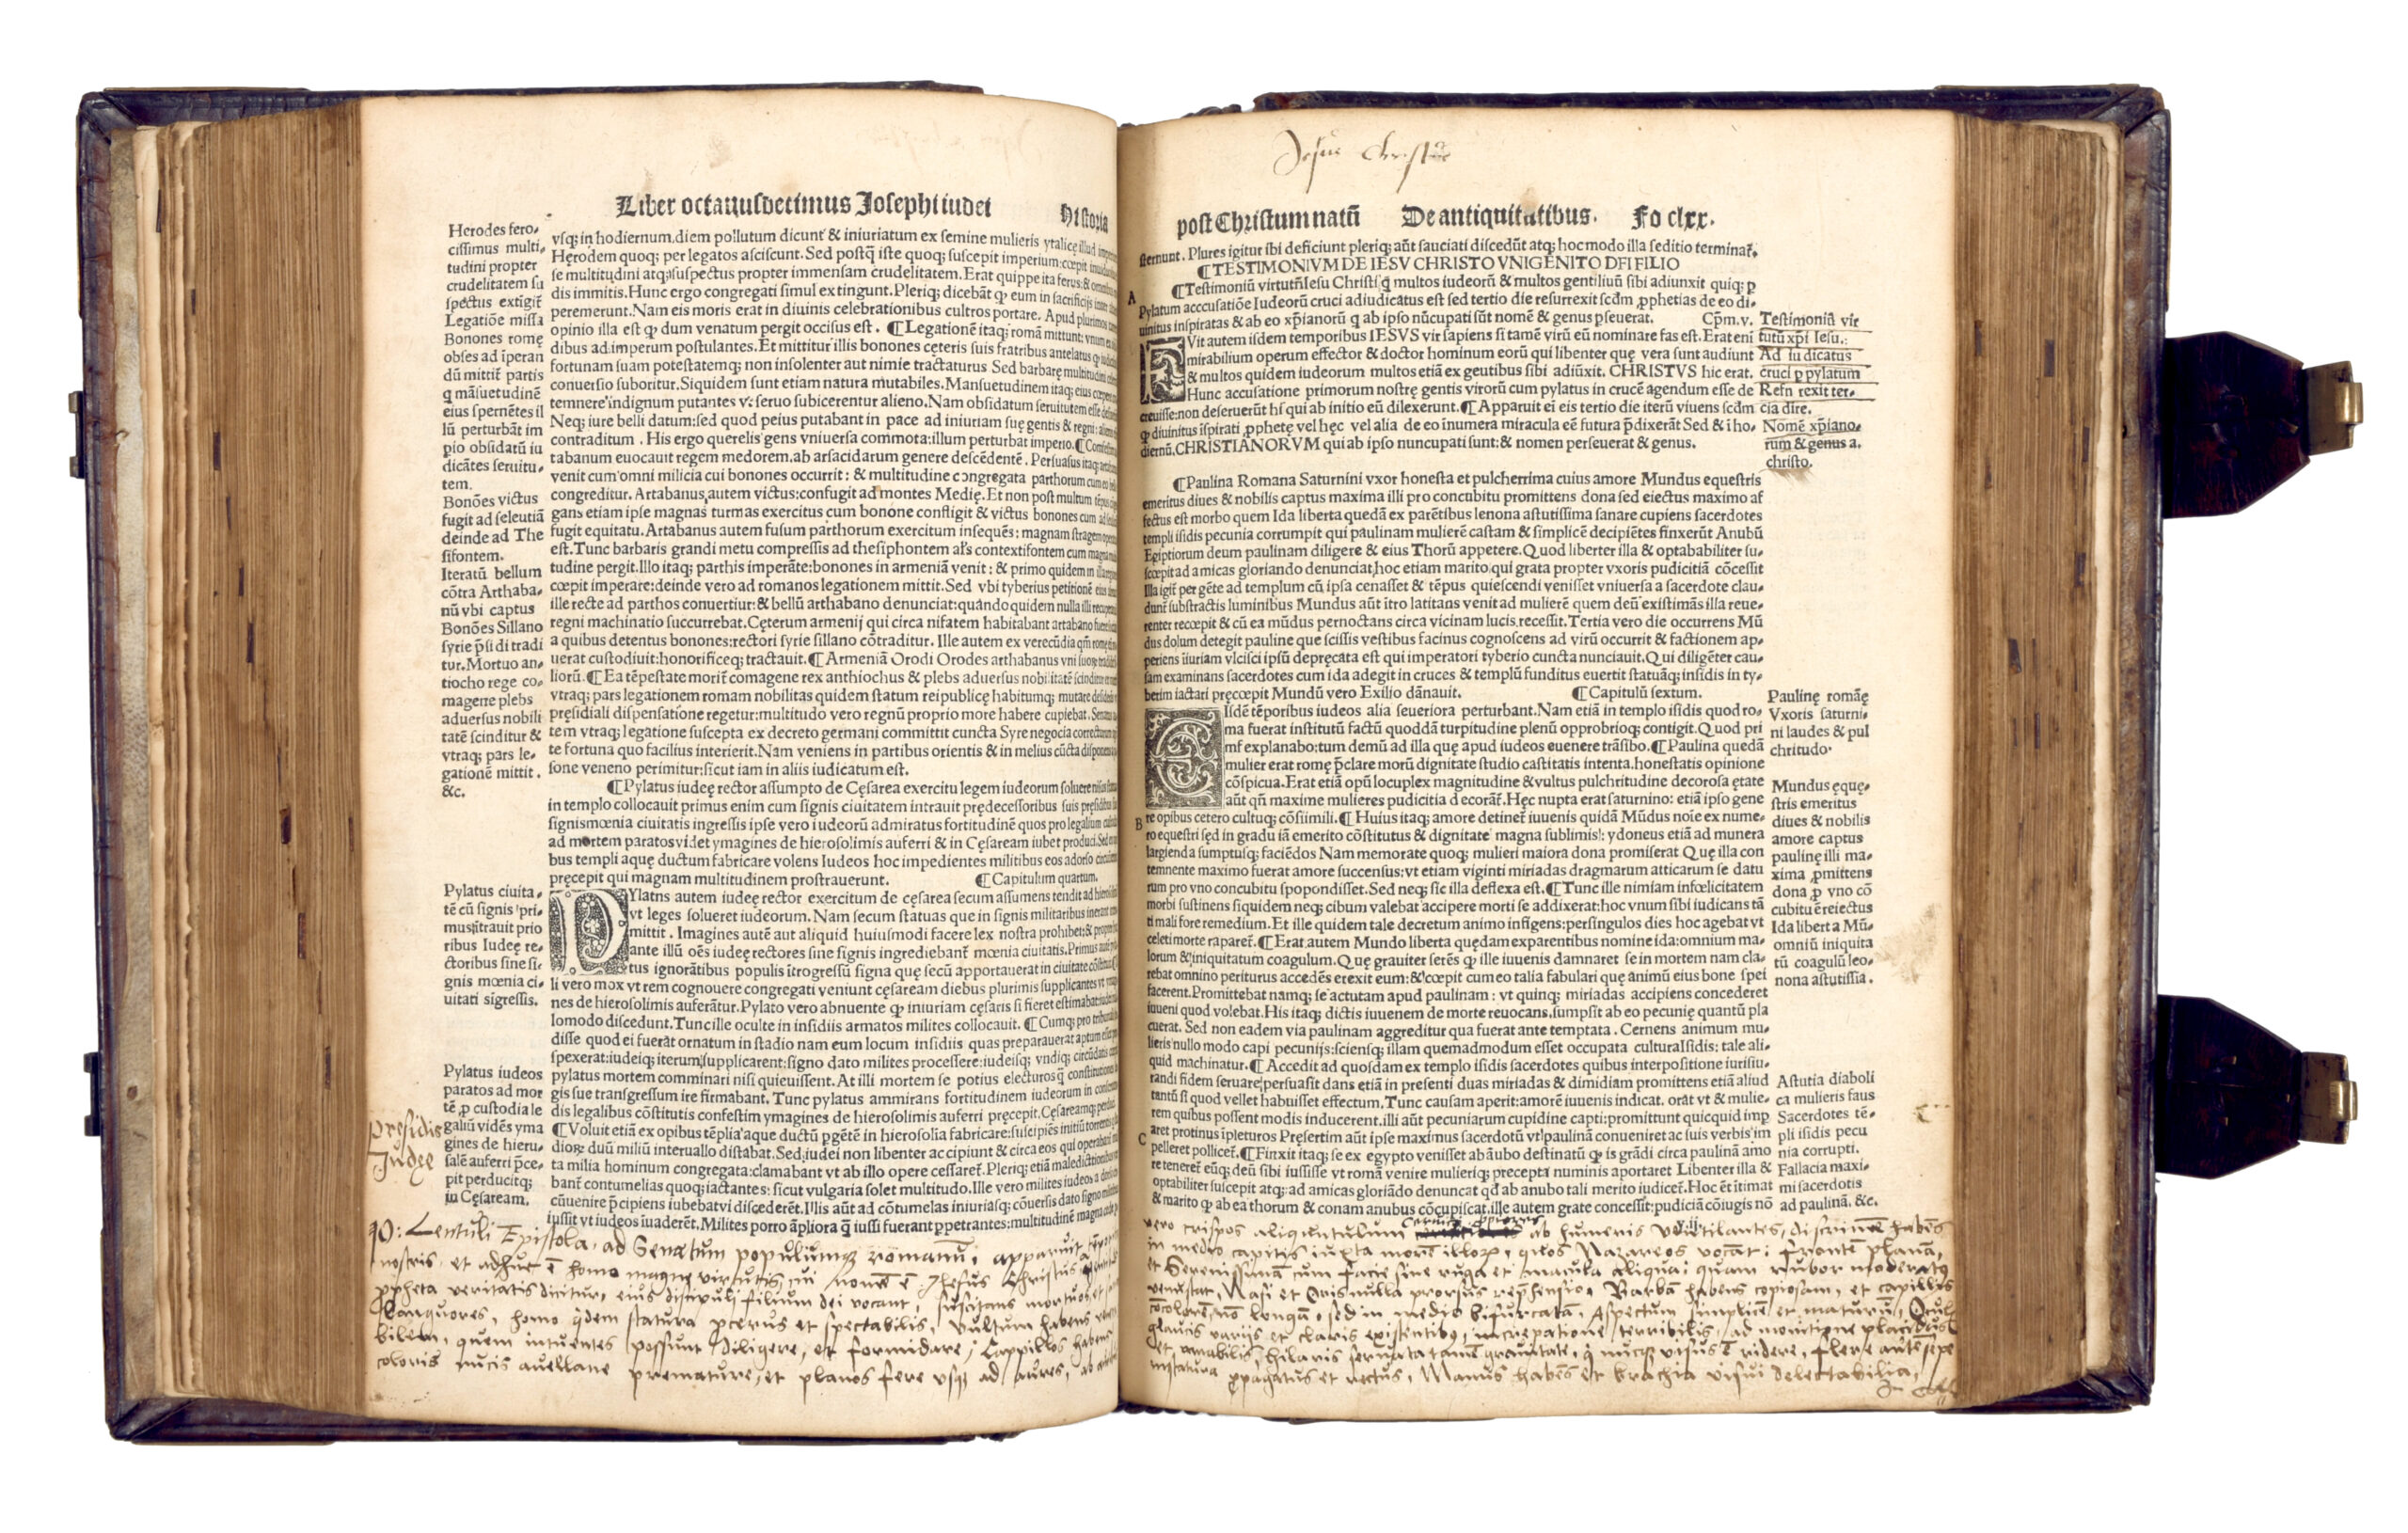 Liber octauusdecimus Josephi iudei
Historia
Herodes fero-
cissimus multi-
tudini propter
crudelitatem su
spectus extīgit̃
Legatiōe missa
Bonones romę
obses ad īperan
dū mittit̃ partis
q māsuetudinē
eius spernētes il
lū perturbāt im
pio obsidatū iu
dicātes seruitu-
tem.
Bonōes victus
fugit ad seleutiā
deinde ad The
sifontem.
Iteratū bellum
cōtra Arthaba-
nū vbi captus
Bonōes Sillano
syrie p̄sidi tradi
tur. Mortuo an-
tiocho rege co-
magene plebs
aduersus nobili
tatē scinditur &
vtraq; pars le-
gationē mittit.
&c.
Pylatus ciuita-
tē cū signis pri-
mus ītrauit prio
ribus Iudeę re-
ctoribus sine si-
gnis mœnia ci-
uitati sīgressis.
Pylatus iudeos
paratos ad mor
tē ꝓ custodia le
galiū vidēs yma
gines de hieru-
salē auferri p̄ce-
pit perducitq;
in Cęsaream.
Pręsidis
Iudęę
vsq; in hodiernum diem pollutum dicunt & iniuriatum ex semine mulieris ytalicę illud
Hęrodem quoq; per legatos asciscunt. Sed postq̄ iste quoq; suscepit imperium: cœpit
se multitudini atq; suspectus propter immensam crudelitatem. Erat quippe ita ferus: &
dis immitis. Hunc ergo congregati simul extingunt. Pleriq; dicebāt ꝙ eum in sacrificijs
peremerunt. Nam eis moris erat in diuinis celebrationibus cultros portare. Apud plurimos
opinio illa est ꝙ dum venatum pergit occisus est. ¶ Legationē itaq; romā mittunt: vnum
dibus ad imperum postulantes. Et mittitur illis bonones cęteris suis fratribus antelatus ꝙ
fortunam suam potestatemq; non insolenter aut nimie tractaturus Sed barbarę multitudini
conuersio suboritur. Siquidem sunt etiam natura mutabiles. Mansuetudinem itaq; eius
temnere indignum putantes vt seruo subicerentur alieno. Nam obsidatum seruitutem esse
Neq; iure belli datum: sed quod peius putabant in pace ad iniuriam suę gentis & regni:
contraditum. His ergo querelis gens vniuersa commota: illum perturbat imperio. ¶
tabanum euocauit regem medorem, ab arsacidarum genere descēdentē. Persuasus itaq;
venit cum omni milicia cui bonones occurrit: & multitudine congregata parthorum cum
congreditur. Artabanus autem victus: confugit ad montes Medię. Et non post multum
gans etiam ipse magnas turmas exercitus cum bonone confligit & victus bonones cum
fugit equitatu. Artabanus autem fusum parthorum exercitum insequēs: magnam stragem
est. Tunc barbaris grandi metu compressis ad thesiphontem als contextifontem cum magna
tudine pergit. Illo itaq; parthis imperāte: bonones in armeniā venit: & primo quidem in
cœpit imperare: deinde vero ad romanos legationem mittit. Sed vbi tyberius petitionē eius
ille recte ad parthos conuertiur: & bellū arthabano denunciat: quando quidem nulla illi
regni machinatio succurrebat. Cęterum armenij qui circa nifatem habitabant artabano
a quibus detentus bonones: rectori syrie sillano cōtraditur. Ille autem ex verecūdia qm̄
uerat custodiuit: honorificeq; tractauit. ¶ Armeniā Orodi Orodes arthabanus vni
liorū. ¶ Ea tēpestate morit̃ comagene rex anthiochus & plebs aduersus nobilitatē
vtraq; pars legationem romam nobilitas quidem statum reipublicę habitumq; mutare
pręsidiali dispensatione regetur: multitudo vero regnū proprio more habere cupiebat.
tem vtraq; legatione suscepta ex decreto germani committit cuncta Syre negocia
te fortuna quo facilius interierit. Nam veniens in partibus orientis & in melius cūcta
sone veneno perimitur: sicut iam in aliis iudicatum est.
¶ Pylatus iudeę rector assumpto de Cęsarea exercitu legem iudeorum soluere
in templo collocauit primus enim cum signis ciuitatem intrauit prędecessoribus suis
signis mœnia ciuitatis ingressis ipse vero iudeorū admiratus fortitudinē quos pro legalium
ad mortem paratos videt ymagines de hierosolimis auferri & in Cęsaream iubet produci.
bus templi aquę ductum fabricare volens Iudeos hoc impedientes militibus eos adorso
pręcepit qui magnam multitudinem prostrauerunt. ¶ Capitulum quartum.
PYlatns autem iudeę rector exercitum de cęsarea secum assumens tendit ad
vt leges solueret iudeorum. Nam secum statuas que in signis militaribus
mittit. Imagines autē aut aliquid huiusmodi facere lex nostra prohibet:
ante illū oēs iudeę rectores sine signis ingrediebant̃ mœnia ciuitatis. Primus
tus ignorātibus populis ītrogressū signa quę secū apportauerat in ciuitate
li vero mox vt rem cognouere congregati veniunt cęsaream diebus plurimis supplicantes
nes de hierosolimis auferātur. Pylato vero abnuente ꝙ iniuriam cęsaris si fieret
lomodo discedunt. Tunc ille oculte in insidiis armatos milites collocauit. ¶ Cumq; pro
disse quod ei fuerāt ornatum in stadio nam eum locum insidiis quas preparauerat
spexerat: iudeiq; iterum supplicarent: signo dato milites processere: iudeisq; vndiq;
pylatus mortem comminari nisi quieuissent. At illi mortem se potius electuros q̄
gis sue transgressum ire firmabant. Tunc pylatus ammirans fortitudinem iudeorum in
dis legalibus cōstitutis confestim ymagines de hierosolimis auferri pręcepit.
¶ Voluit etiā ex opibus tēpli aque ductū ꝑgētē in hierosolia fabricare:
dioꝝ duū miliū interuallo distabat. Sed iudei non libenter accipiunt & circa eos qui
ta milia hominum congregata: clamabant vt ab illo opere cessaret̃. Pleriq; etiā
bant̃ contumelias quoq; iactantes: sicut vulgaria solet multitudo. Ille vero milites
cūuenire p̄cipiens iubebat vi discederēt. Illis aūt ad cōtumelas iniuriasq; cōuersis dato signo
iussit vt iudeos īuaderēt. Milites porro āpliora q̄ iussi fuerant ꝑpetrantes: multitudinē
P: Lentuli Epistola, ad Senatum populumq; romanū, apparuit
nostris, et adhuc ē homo magnę virtutis, cui nomē ē Ihesus Christus
ꝓpheta veritatis dicitur, eius discipuli filium dei vocant, suscitans mortuos, et
languores, homo q̄dem statura ꝓcerus et spectabilis, vultum habens
bilem, quem intuentes possunt diligere, et formidare, Cappillos habens
coloris nucis auellane premature, et planos fere vsq; ad aures, ab
Jesus Christus
post Christum natū De antiquitatibus. Fo clxx.
sternunt. Plures igitur ibi deficiunt pleriq; aūt sauciati discedūt atq; hoc modo illa seditio terminat̃.
¶ TESTIMONIVM DE IESV CHRISTO VNIGENITO DEI FILIO
A
¶ Testimoniū virtutū Iesu Christi q multos iudeorū & multos gentiliū sibi adiunxit quiq; ꝑ
Pylatum acccusatiōe Iudeorū cruci adiudicatus est sed tertio die resurrexit scdm ꝓphetias de eo di-
uinitus inspiratas & ab eo xp̄ianorū q ab ipso nūcupati sūt nomē & genus ꝑseuerat. Cp̄m. v.
FVit autem isdem temporibus IESVS vir sapiens si tamē virū eū nominare fas est. Erat enī
mirabilium operum effector & doctor hominum eorū qui libenter quę vera sunt audiunt
& multos quidem iudeorum multos etiā ex geutibus sibi adiūxit. CHRISTVS hic erat.
Hunc accusatione primorum nostrę gentis virorū cum pylatus in crucē agendum esse de
creuisse: non deseruerūt hi qui ab initio eū dilexerunt. ¶ Apparuit ei eis tertio die iterū viuens scdm
ꝙ diuinitus īspirati ꝓphetę vel hęc vel alia de eo īnumera miracula eē futura p̄dixerāt Sed & ī ho-
diernū. CHRISTIANORVM qui ab ipso nuncupati sunt: & nomen perseuerat & genus.
Testimoniū vir
tutū xp̄i Iesu.:
Ad iu dicatus
cruci ꝑ pylatum
Resn rexit ter-
cia dire.
Nomē xp̄iano-
rum & genus a.
christo.
¶ Paulina Romana Saturnini vxor honesta et pulcherrima cuius amore Mundus equestris
emeritus diues & nobilis captus maxima illi pro concubitu promittens dona sed eiectus maximo af
fectus est morbo quem Ida liberta quedā ex parētibus lenona astutissima sanare cupiens sacerdotes
templi isidis pecunia corrumpit qui paulinam mulierē castam & simplicē decipiētes finxerūt Anubū
Egiptiorum deum paulinam diligere & eius Thorū appetere. Quod liberter illa & optababiliter su-
scœpit ad amicas gloriando denunciat, hoc etiam marito, qui grata propter vxoris pudicitiā cōcessit
Illa igit̃ pergēte ad templum cū ipsa cenasset & tēpus quiescendi venisset vniuersa a sacerdote clau-
dunt̃ substractis luminibus Mundus aūt ītro latitans venit ad mulierē quem deū existimās illa reue-
renter recœpit & cū ea mūdus pernoctans circa vicinam lucis recessit. Tertia vero die occurrens Mū
dus dolum detegit pauline que scissis vestibus facinus cognoscens ad virū occurrit & factionem ap-
periens īiuriam vlcisci ipsū depręcata est qui imperatori tyberio cuncta nunciauit. Qui diligēter cau-
sam examinans sacerdotes cum ida adegit in cruces & templū funditus euertit statuāq; insidis in ty-
berim iactari pręcœpit Mundū vero Exilio dānauit. ¶ Capitulū sextum.
EIsdē tēporibus iudeos alia seueriora perturbant. Nam etiā in templo isidis quod ro-
ma fuerat institutū factū quoddā turpitudine plenū opprobrioq; contigit. Quod pri
mf explanabo: tum demū ad illa quę apud iudeos euenere trāsibo. ¶ Paulina quedā
mulier erat romę p̄clare morū dignitate studio castitatis intenta, honestatis opinione
cōspicua. Erat etiā opū locuplex magnitudine & vultus pulchritudine decorosa ętate
aūt qn̄ maxime mulieres pudicitia decorāt̃. Hęc nupta erat saturnino: etiā ipso gene
B
re opibus cetero cultuq; cōsiimili. ¶ Huius itaq; amore detinet̃ iuuenis quidā Mūdus noīe ex nume-
ro equestri sęd in gradu iā emerito cōstitutus & dignitate magna sublimis: ydoneus etiā ad munera
largienda sumptusq; faciēdos Nam memorate quoq; mulieri maiora dona promiserat Quę illa con
temnente maximo fuerat amore succensus: vt etiam viginti miriadas dragmarum atticarum se datu
rum pro vno concubitu spopondisset. Sed neq; sic illa deflexa est. ¶ Tunc ille nimiam infœlicitatem
morbi sustinens siquidem neq; cibum valebat accipere morti se addixerat: hoc vnum sibi iudicans tā
ti mali fore remedium. Et ille quidem tale decretum animo infigens: persingulos dies hoc agebat vt
celeti morte raparet̃. ¶ Erat autem Mundo liberta quędam exparentibus nomine ida: omnium ma-
lorum & iniquitatum coagulum. Quę grauiter ferēs ꝙ ille iuuenis damnaret se in mortem nam cla-
rebat omnino periturus accedēs erexit eum: & cœpit cum eo talia fabulari quę animū eius bone spei
facerent. Promittebat namq; se actutam apud paulinam: vt quinq; miriadas accipiens concederet
iuueni quod volebat. His itaq; dictis iuuenem de morte reuocans, sumpsit ab eo pecunię quantū pla
cuerat. Sed non eadem via paulinam aggreditur qua fuerat ante temptata. Cernens animum mu-
lieris nullo modo capi pecunijs: sciensq; illam quemadmodum esset occupata cultura Isidis: tale ali-
quid machinatur. ¶ Accedit ad quosdam ex templo isidis sacerdotes quibus interpositione iurisiu-
randi fidem seruare: persuasit dans etiā in presenti duas miriadas & dimidiam promittens etiā aliud
tantū si quod vellet habuisset effectum. Tunc causam aperit: amorē iuuenis indicat. orāt vt & mulie-
rem quibus possent modis inducerent. illi aūt pecuniarum cupidine capti: promittunt quicquid imp
C
aret protinus īpleturos Pręsertim aūt ipse maximus sacerdotū vt paulinā conueniret ac suis verbis im
pelleret pollicet̃. ¶ Finxit itaq; se ex egypto venisset ab āubo destinatū ꝙ is grādi circa paulinā amo
re teneret̃ eūq; deū sibi iussisse vt romā venire mulieriq; precepta numinis aportaret Libenter illa &
optabiliter suscepit atq; ad amicas gloriādo denuncat qd̄ ab anubo tali merito iudicet̃. Hoc ēt ītimat
& marito ꝙ ab ea thorum & conam anubus cōcupiscat, ille autem grate concessit: pudiciā cōiugis nō
Paulinę romāę
Vxoris saturni-
ni laudes & pul
chritudo·
Mundus ęquę-
stris emeritus
diues & nobilis
amore captus
paulinę illi ma-
xima ꝓmittens
dona ꝓ vno cō
cubitu ē reiectus
Ida libert a Mū-
omniū iniquita
tū coagulū leo-
nona astutissia.
Astutia diaboli
ca mulieris faus
Sacerdotes tē-
pli isidis pecu
nia corrupti.
Fallacia maxi-
mi sacerdotis
ad paulinā. &c.
vero crispos aliquantulum ab humeris ventilantes, discrimē habēs
in medio capitis iuxta morē illoꝝ, quos Nazareos vocāt: frontē planā,
et Serenissimā cum facie sine ruga et macula aliqua: quam rubor moderatꝯ
venustat, Nasi et Oris nulla prorsus reprehensio, Barbā habens copiosam, et capillis
cōcolorē, nō longā, sed in medio bifurcatā, Aspectum simplicē et maturū, Ocul
glaucis varijs et claris existentibꝯ, increpatione terribilis, ad monitione placidus
et amabilis, hilaris seruata tamē grauitate, q̄ nuncq̄ visus ē ridere, flere autē sepe
in statura ꝓpagatus et rectus, Manus habēs et brachia visui delectabilia,